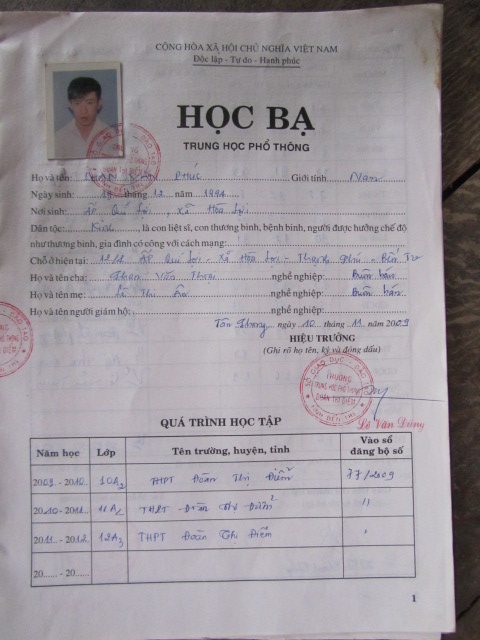 CỘNG HÒA XÃ HỘI CHỦ NGHĨA VIỆT NAM
Độc lập - Tự do - Hạnh phúc
HỌC BẠ
TRUNG HỌC PHỔ THÔNG
Họ và tên: PHÚC Giới tính Nam
Ngày sinh: 19 tháng 12 năm 1994
Nơi sinh: ấp Quí Lợi, Xã Hòa Lợi
Dân tộc: Kinh, là con liệt sĩ, con thương binh, bệnh binh, người được hưởng chế độ
như thương binh, gia đình có công với cách mạng:
Chỗ ở hiện tại: ấp Quí Lợi - Xã Hòa Lợi - Thạnh Phú - Bến Tre
Họ và tên cha: Phan Văn nghề nghiệp: Buôn bán
Họ và tên mẹ: Lê Thị nghề nghiệp: Buôn bán
Họ và tên người giám hộ:
Tân Phong, ngày 10 tháng 11 năm 2009
HIỆU TRƯỞNG
(Ghi rõ họ tên, ký và đóng dấu)
TRƯỜNG
TRUNG HỌC PHỔ THÔNG
ĐOÀN THỊ ĐIỂM
TỈNH BẾN TRE
Lê Văn Dũng
QUÁ TRÌNH HỌC TẬP
Năm học Lớp Tên trường, huyện, tỉnh Vào sổ đăng bộ số
2009 - 2010 10A2 THPT Đoàn Thị Điểm 77/2009
2010 - 2011 THPT Đoàn Thị Điểm "
2011 - 2012 12A3 THPT Đoàn Thị Điểm "
20...... - 20......
1